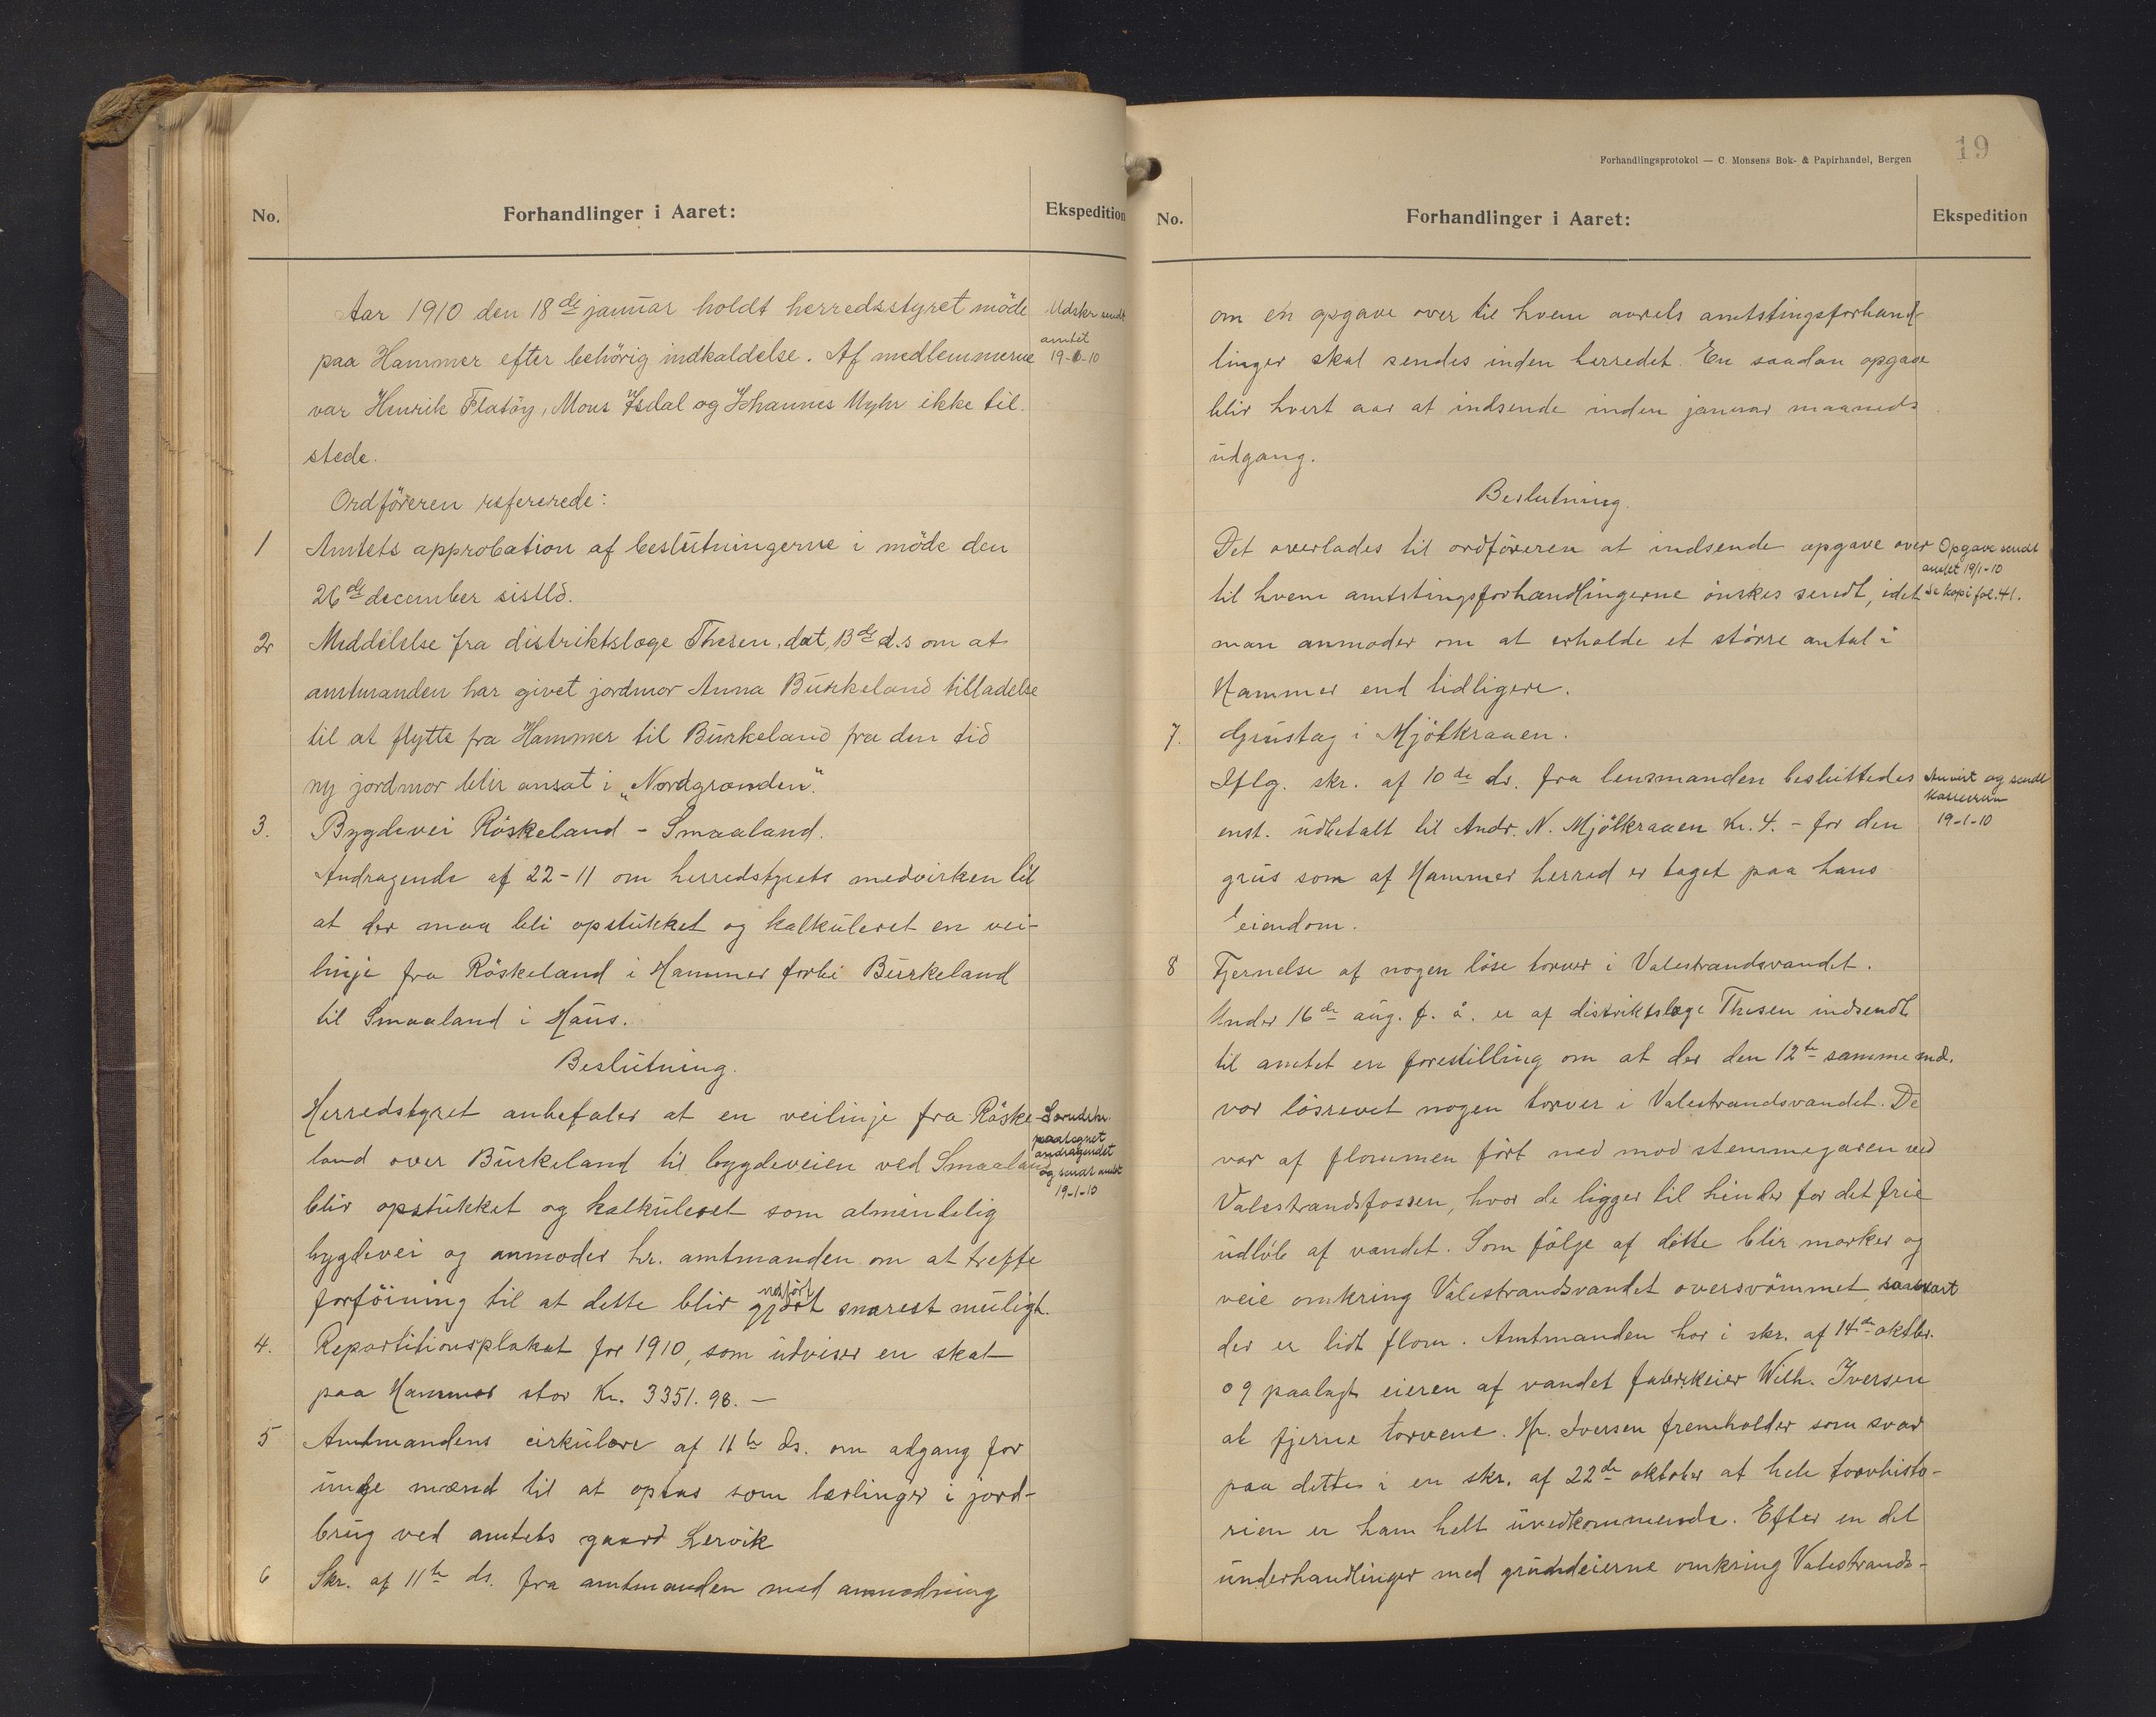 No.
Forhandlinger i Aaret:
Ekspedition
Aar 1910 den 18de januar holdt herredsstyret möde
paa Hammer efter behörig indkaldelse. Af medlemmerne
var Henrik Flatöy, Mons Isdal og Johannes Myhr ikke til
stede.
Udskr sendt
amtet
19-1-10
Ordföreren refererede:
1
Amtets approbation af beslutningerne i möde den
26de december sistld.
2
Meddelelse fra distriktslæge Thesen, dat, 13de d.s om at
amtmanden har givet jordmor Anna Burkeland tilladelse
til at flytte fra Hammer til Burkeland fra den tid
ny jordmor blir ansat i „Nordgrænden".
3.
Bygdevei Röskeland - Smaaland.
Andragende af 22-11 om herredstyrets medvirken til
at der maa bli opstukket og kalkuleret en vei-
linje fra Röskeland i Hammer forbi Burkeland
til Smaaland i Haus.
Beslutning.
Herredstyret anbefaler at en veilinje fra Röske-
land over Burkeland til bygdeveien ved Smaaland
blir opstukket og kalkuleret som almindelig
bygdevei og anmoder hr. amtmanden om at treffe
forföining til at dette blir gjort snarest muligt.
paategnet
andragendet
og sendt amtet
19-1-10
4.
Repartitionsplakat for 1910, som udviser en skat
paa Hammer stor Kr. 3351.98.—
5
Amtmandens cirkulære af 11te ds. om adgang for
unge mænd til at optas som lærlinger i jord-
brug ved amtets gaard Lervik
6
Skr. af 11te ds. fra amtmanden med anmodning
Forhandlingsprotokol — C. Monsens Bok- & Papirhandel, Bergen
19
No.
Forhandlinger i Aaret:
Ekspedition
om en opgave over til hvem aarets amtstingsforhand-
linger skal sendes inden herredet. En saadan opgave
blir hvert aar at indsende inden januar maaneds
udgang.
Beslutning.
Det overlades til ordföreren at indsende opgave over
til hvem amtstingsforhandlingerne önskes sendt, idet
man anmoder om at erholde et större antal i
Hammer end tidligere.
Opgave sendt
amtet 19/1-10
se kopi fol. 41.
7.
Grustag i Mjölkraaen.
Iflg. skr. af 10de ds. fra lensmanden besluttedes
enst. udbetalt til Andr. N. Mjölkraaen Kr. 4.- for den
grus som af Hammer herred er taget paa hans
eiendom.
Anvist og sendt
kassereren
19-1-10
8
Fjernelse af nogen löse torver i Valestrandsvandet.
Under 16de aug. f. å. er af distriktslæge Thesen indsendt
til amtet en forestilling om at der den 12te samme md.
var lösrevet nogen torver i Valestrandsvandet. De
var af flommen fört ned mod stemmegaren ved
Valestrandsfossen, hvor de ligger til hinder for det frie
udlöb af vandet. Som fölge af dette blir marker og
veie omkring Valestrandsvandet oversvömmet saasnart
der er lidt flom. Amtmanden har i skr. af 14de oktbr.
09 paalagt eieren af vandet fabrikeier Wilh. Iversen
at fjerne torvene. Hr. Iversen fremholder som svar
paa dette i en skr. af 22de oktober at hele torvhisto-
rien er ham helt uvedkommende. Efter en del
underhandlinger med grundeierne omkring Valestrands-